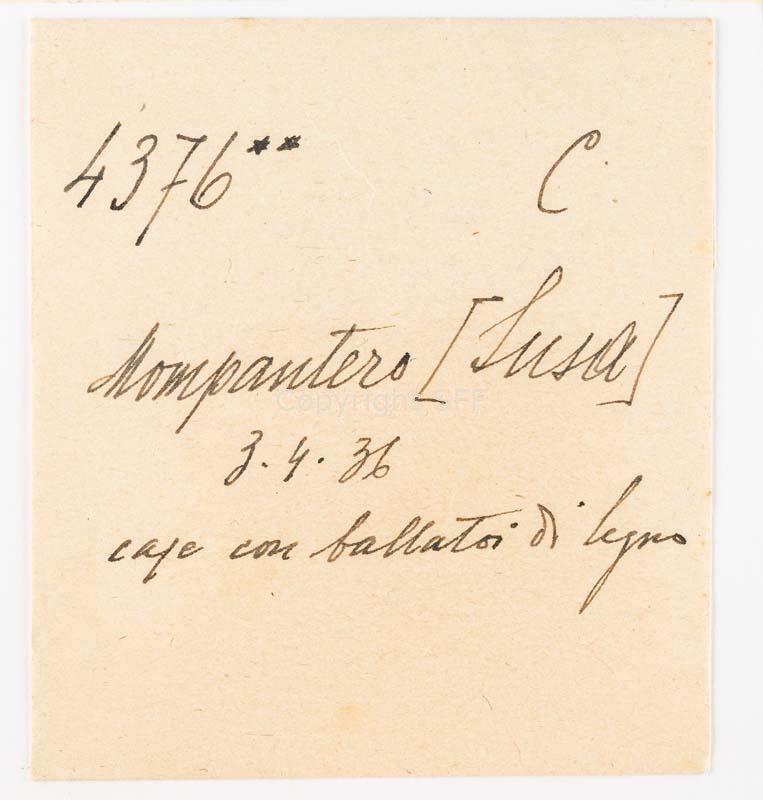 4376** C.
Mompantero [Susa]
Copyright SFF
3.4.36
case con ballatoi di legno